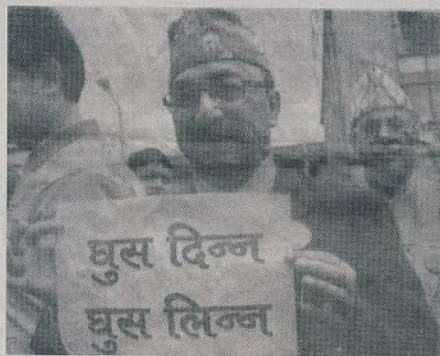 घुस दिन्न
घुस लिन्न